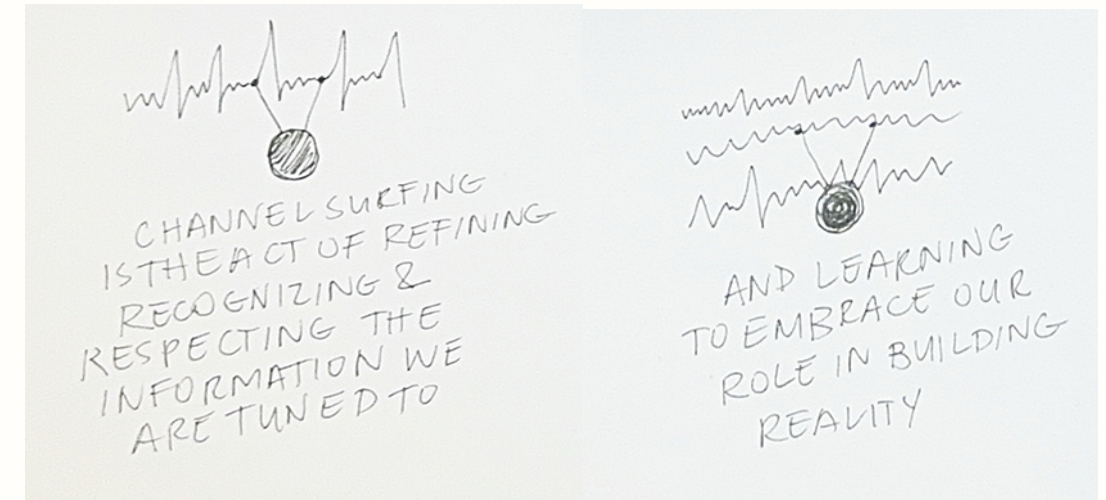 CHANNEL SURFING
IS THE ACT OF REFINING
RECOGNIZING &
RESPECTING THE
INFORMATION WE
ARE TUNED TO
AND LEARNING
TO EMBRACE OUR
ROLE IN BUILDING
REALITY